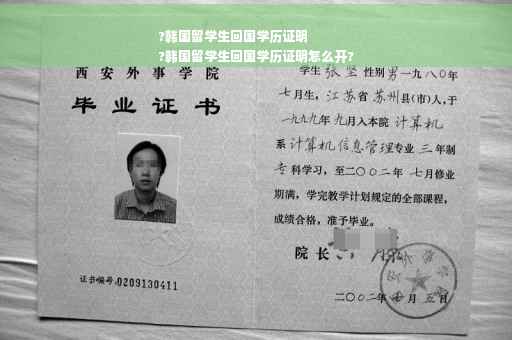 ?韩国留学生回国学历证明
?韩国留学生回国学历证明怎么开?
西安外事学院
毕业证书
证书编号:0209130411
学生张坚性别男一九八〇年
七月生,江苏省苏州县(市)人,于
一九九九年九月入本院计算机
系计算机信息管理专业三年制
专科学习,至二〇〇二年七月修业
期满,学完教学计划规定的全部课程,
成绩合格,准予毕业。
院长
二〇〇二年 月五日